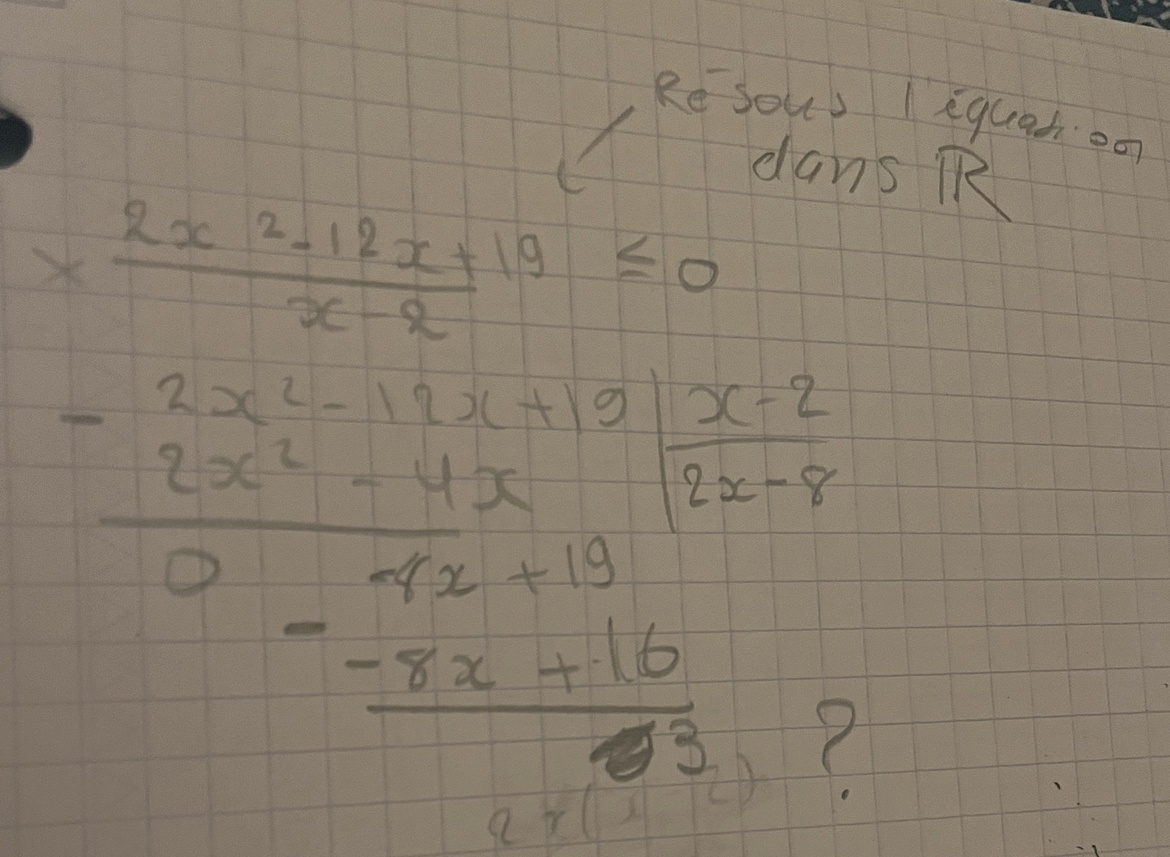 Résous l'équation
dans ℝ
× 2x² - 12x + 19 ≤ 0
x - 2
- 2x² - 12x + 19 | x - 2
2x² - 4x | 2x - 8
0 -8x + 19
- -8x + 16
3 ?
2x(x - 2)